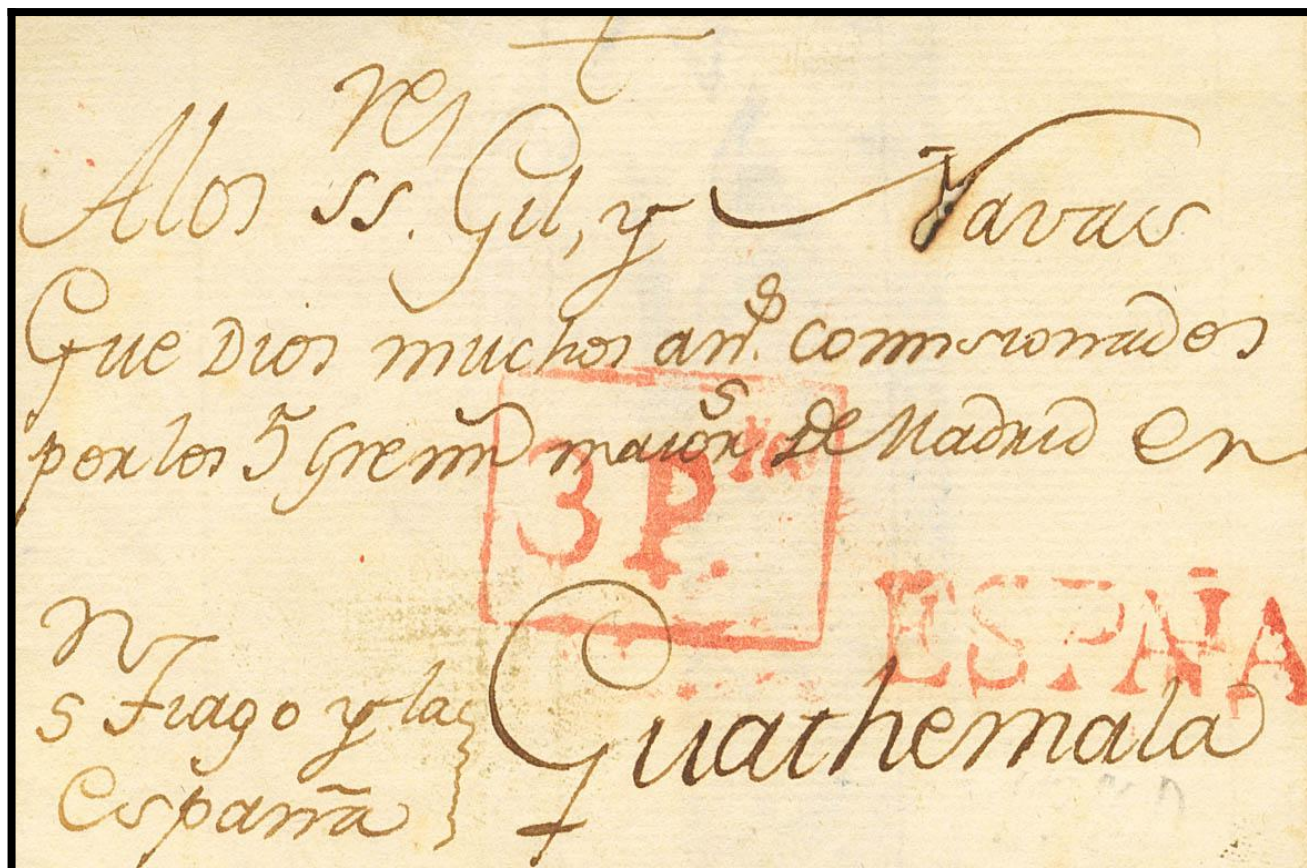 A los SS.res Gil, y Navas
Gue Dios muchos an.s comisionados
por los 5 Grem maior.s de Madrid en
3 P.
ESPAÑA
Guathemala
S Tiago y la
España